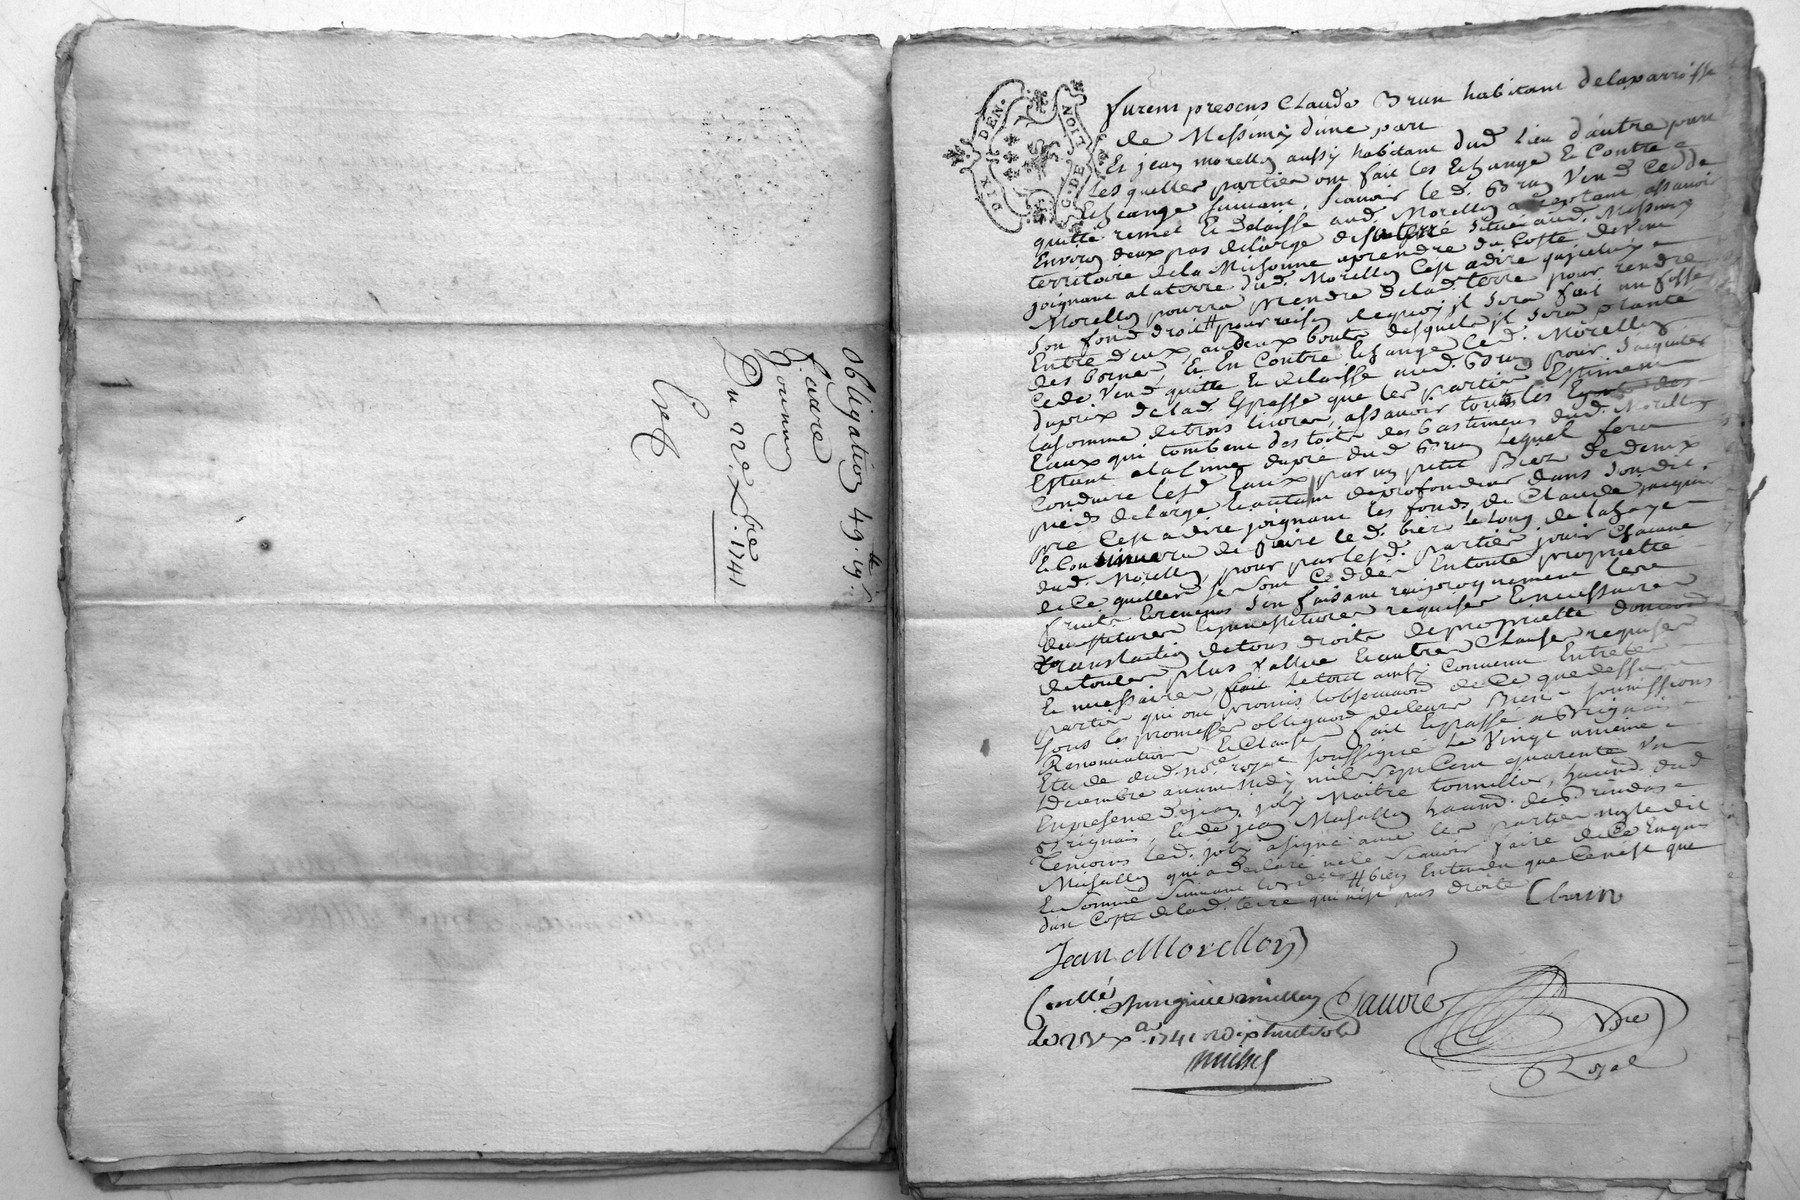 Obligation 49.lt 19.s
Favre
Bonnu
Du 22e Xbre 1741
Exp.
DIX DEN.
G. DE LION
furent presens Claude Brun habitant de la parroisse
de Messimy d'une part
Et jean morellon aussy habitant dud. lieu d'autre part
Lesquelles parties ont fait les Echange et Contre
Echange suivant, scavoir led. Brun Vend Cedde
quitte remet et delaisse aud. Morellon acceptant, assavoir
Environ deux pas de large de sa terre située aud. Messimy
territoire de la a prendre du Costé de
joignant a la terre dud. Morellon C'est a dire que led.
Morellon pourra prendre de lad. terre pour rendre
son fond droit # pour raison de quoy il sera fait un fossé
Entre d'eux au deux bouts desquels il sera planté
des bornes, et En Contre Echange led. Morellon
Cede Vend quitte et delaisse aud. Brun pour s'acquiter
du prix de lad. Espasse que les parties Estiment
la somme de trois livres, assavoir toutes les
Eaux qui tombent des toits des bastimens dud. Morellon
Estant a la Cime du pré dud. Brun lequel fera
Conduire lesd. Eaux par un petit Biez de deux
pieds de large et autant de profondeur dans son dit
pré C'est a dire joignant les fonds de Claude
et Continuera de faire led. biez le long de la haye
dud. Morellon, pour par lesd. parties jouir Chacune
de Ce quelles se sont Ceddés En toute proprietté
fruits et revenus s'en faisant reciproquement
et investitures requises et necessaires
translation de tous droits de proprietté
de toutes plus vallue et autres Clauses requises
et necessaires fait le tout ainsy Convenu Entre les
parties qui ont promis l'observation de Ce que dessus
sous les promesses obligaons de leurs Biens soumissions
Renonciation et Clauses fait et passé a Brignais
Etude dud. no.re royal soussigné le Vingt unieme
Decembre avant midy mil sept Cent quarente un
En presence de jean joly Maitre tonnellier, habitt. dud.
Brignais, et de jean Masallon habitt. de
temoins led. joly a signé avec les parties non ledit
Masallon qui a declaré ne le scavoir faire de Ce Enquis
Et Sommé suivant lordce # bien Entendu que Ce n'est que
d'un Costé de lad. terre qui n'est pas droite C brun
Jean Morellon
Conllé a millery
le 23e xbre 1741 R dix huit sols
michel
Favre
Nre
Royal